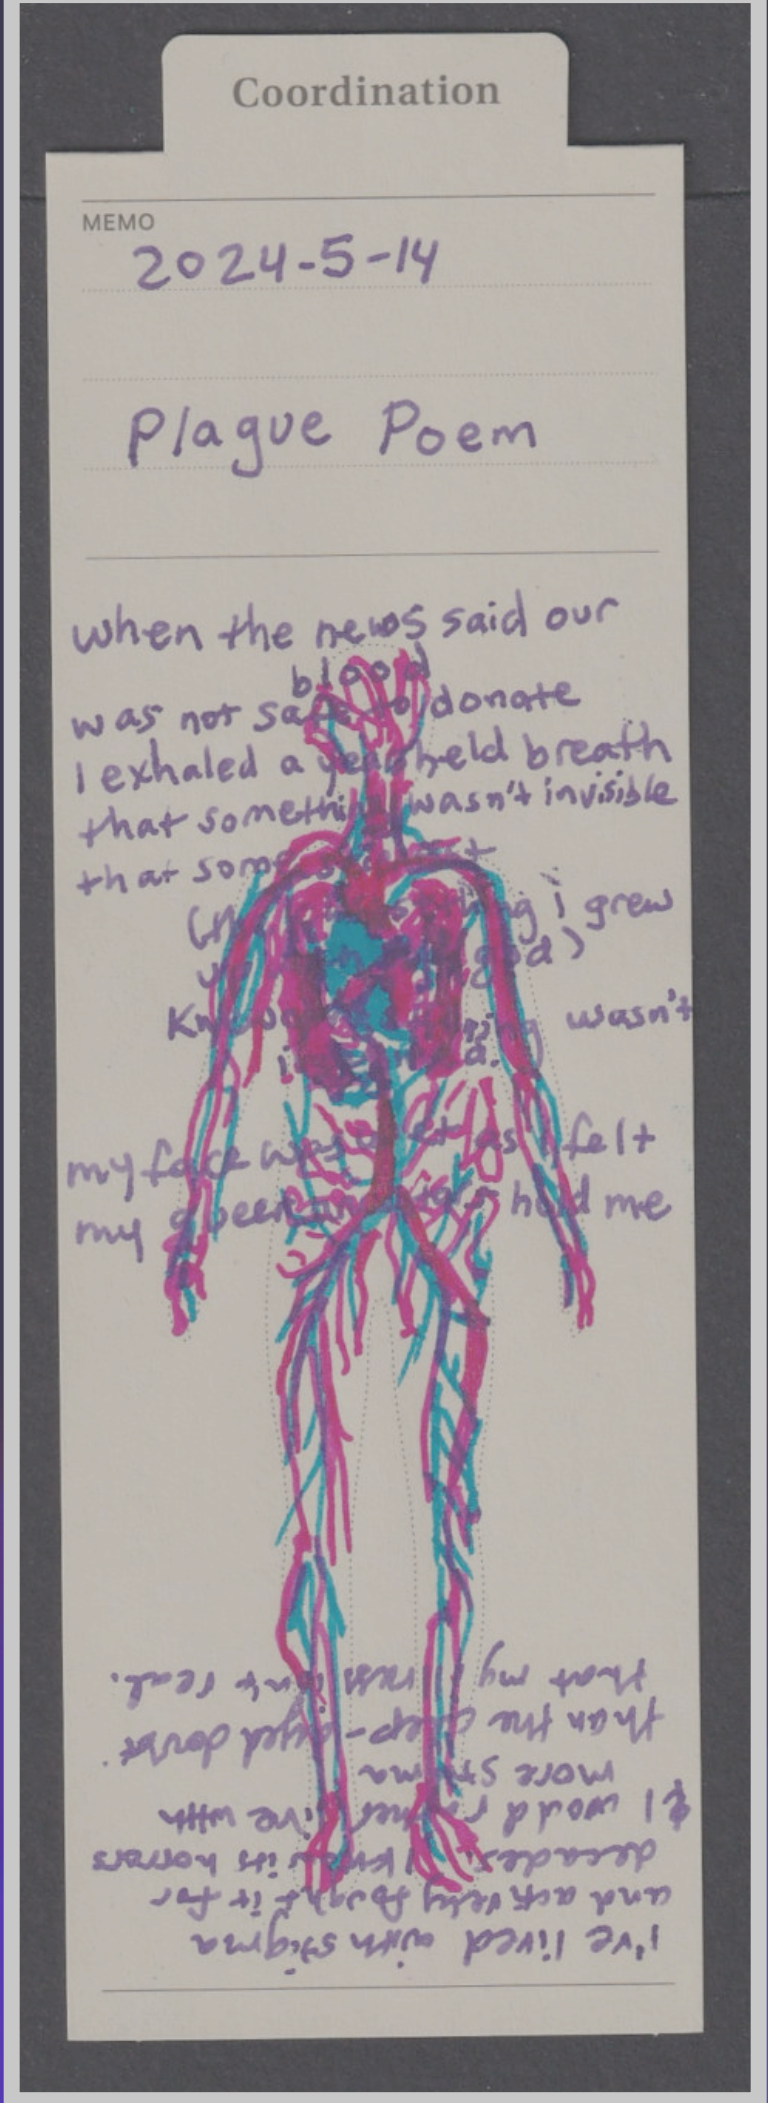 Coordination
MEMO
2024-5-14
Plague Poem
when the news said our
blood
was not safe to donate
I exhaled a year held breath
that something wasn't invisible
that some
i grew
wasn't
my face was as I felt
my queer held me
I've lived with stigma
and actively fought it for
decades. I know its horrors
& I would rather live with
more stigma
than the deep-eyed doubt
that my illness isn't real.